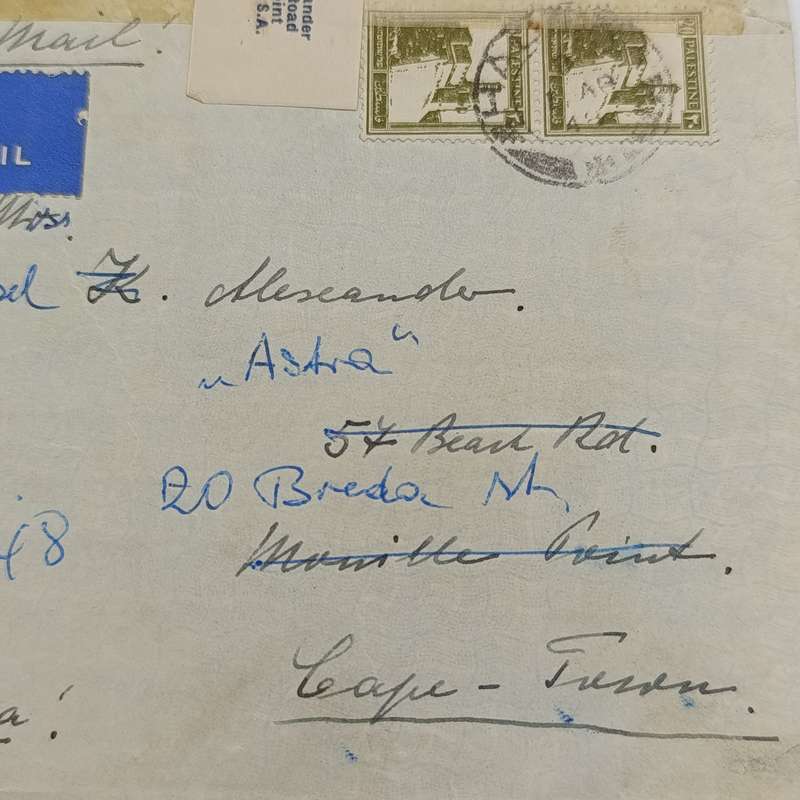 Mail!
ander
Road
int
S.A.
20 PALESTINE ٢٠
PALESTINE ٢٠
IL
Miss.
K. Alexander.
„Astra“
57 Beach Rd.
20 Breda St,
Mouille Point.
48
Cape-Town.
a!